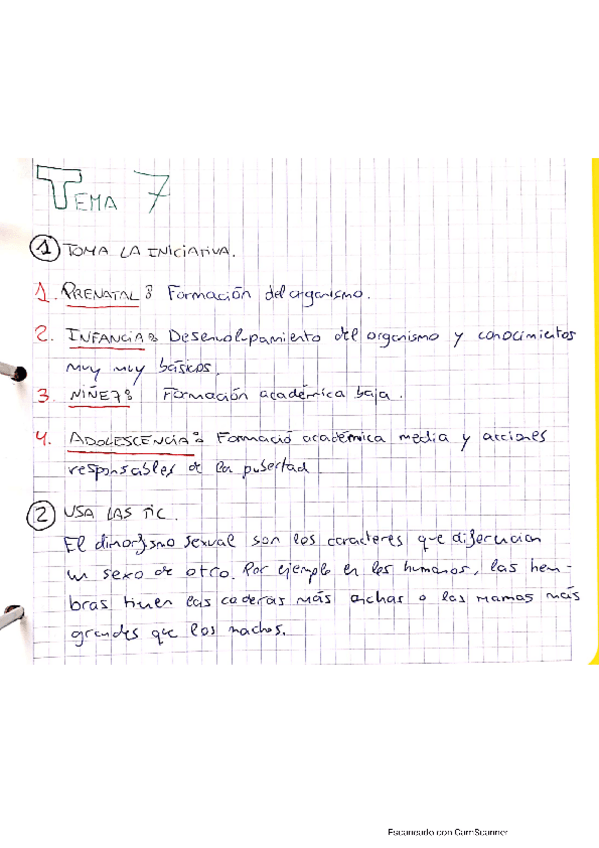 TEMA 7
1 TOMA LA INICIATIVA.
1. PRENATAL: Formación del organismo.
2. INFANCIA: Desenvolupamiento del organismo y conocimientos
muy muy básicos.
3. NIÑEZ: Formación académica baja.
4. ADOLESCENCIA: Formació académica media y acciones
responsables de la pubertad
2 USA LAS TIC.
El dimorfismo sexual son los caracteres que diferencian
un sexo de otro. Por ejemplo en los humanos, las hem-
bras tienen las caderas más anchas o las mamas más
grandes que los machos.
Escaneado con CamScanner